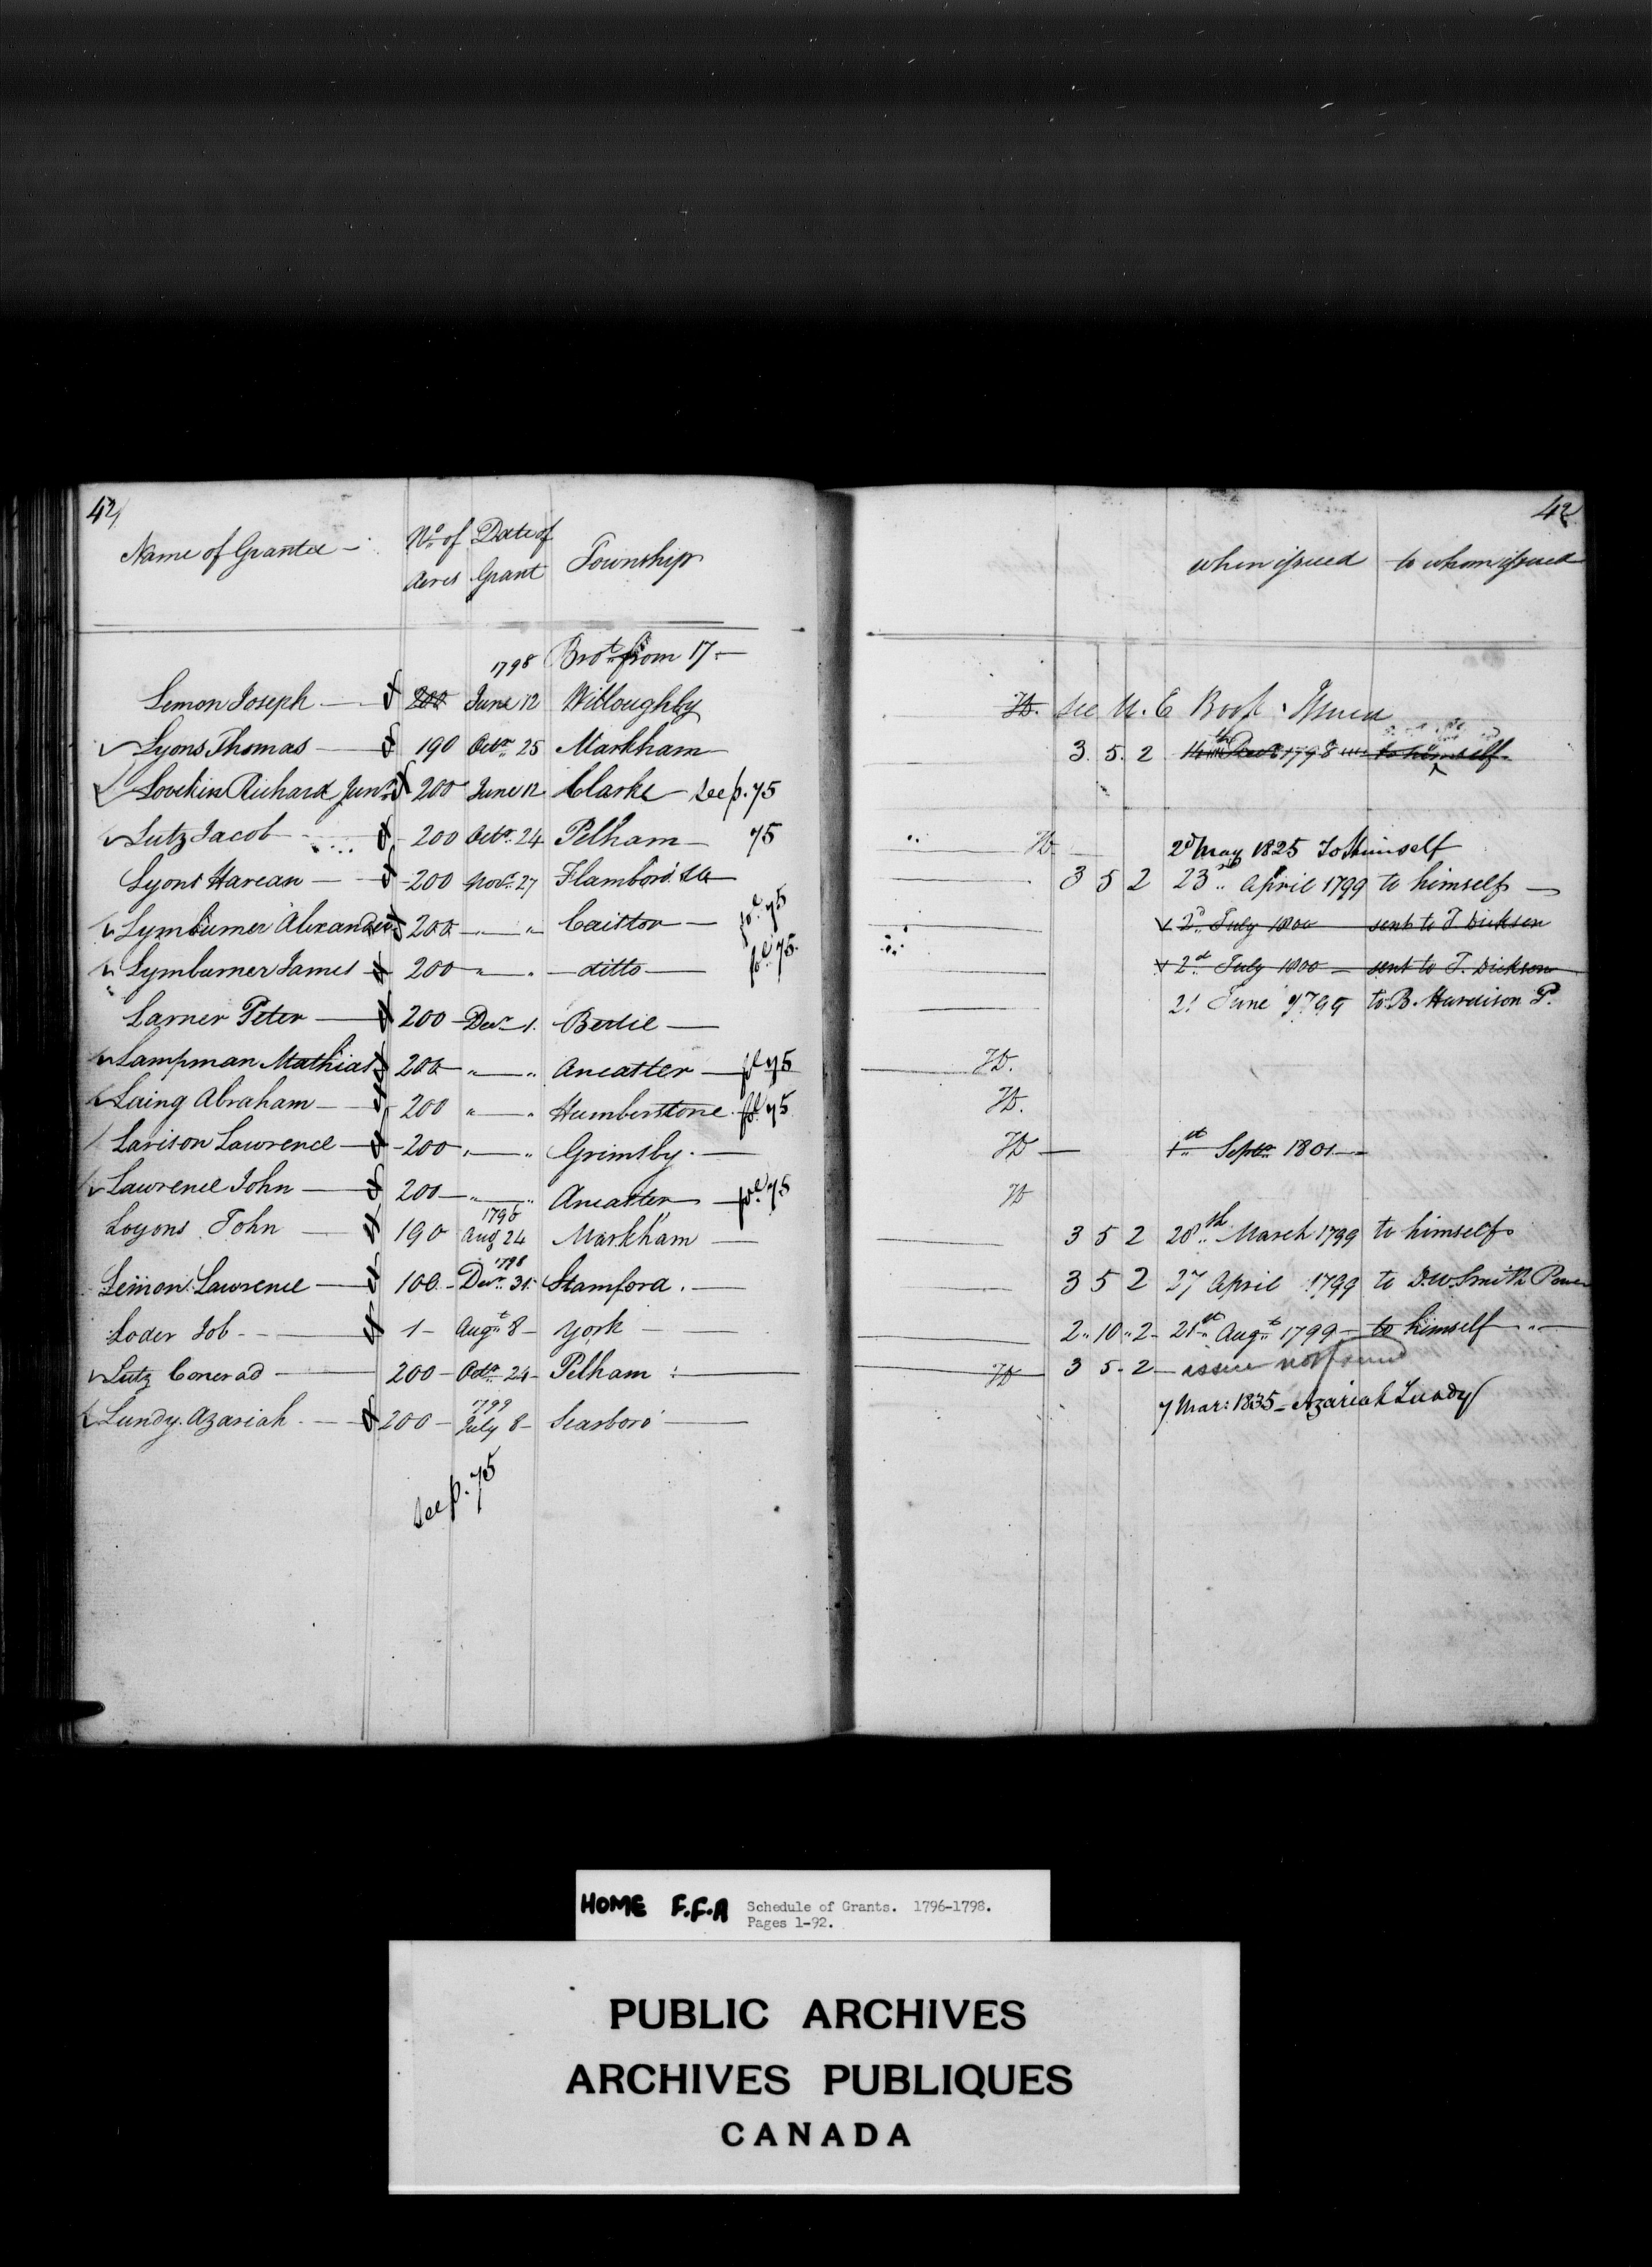 42
Name of Grantee
No. of Acres
Date of Grant
Township
1798 Brot. from 17
Lemon Joseph 200 June 12 Willoughby
Lyons Thomas 190 Octr. 25 Markham
Lovekin Richard Junr. 200 June 12 Clarke See p. 75
Lutz Jacob 200 Octr. 24 Pelham 75
Lyons Harcan 200 Novr. 27 Flamboro'
Lymburner Alexander 200 " " Caistor fol 75
Lymburner James 200 " " ditto fol 75.
Larner Peter 200 Decr. 1. Bertie
Lampman Mathias 200 " " Ancaster fol 75
Laing Abraham 200 " " Humberstone fol 75
Larison Lawrence 200 " " Grimsby
Lawrence John 200 " " Ancaster fol 75
1796
Loyons John 190 Aug 24 Markham
1798
Lemon Lawrence 100 Decr. 31. Stamford.
Loder Job 1 Augt. 8 York
Lutz Conerad 200 Octr. 24 Pelham
1799
Lundy Azariah 200 July 8 Scarboro'
See p. 75
42
when issued to whom issued
See U. E Book Issued
3. 5. 2 1798 to himself
2d May 1825 To himself
3 5 2 23rd April 1799 to himself
2d July 1800 sent to T Dickson
2d July 1800 sent to T. Dickson
21 June 1799 to B. Hardison P.
1st Septr. 1801
3 5 2 28th March 1799 to himself
3 5 2 27 April 1799 to D. W Smith Power
2 " 10 " 2 21st Augt. 1799 to himself
3 5 2 issue not found
7 Mar: 1835 Azariah Lundy
HOME F.F.A Schedule of Grants. 1796-1798.
Pages 1-92.
PUBLIC ARCHIVES
ARCHIVES PUBLIQUES
CANADA